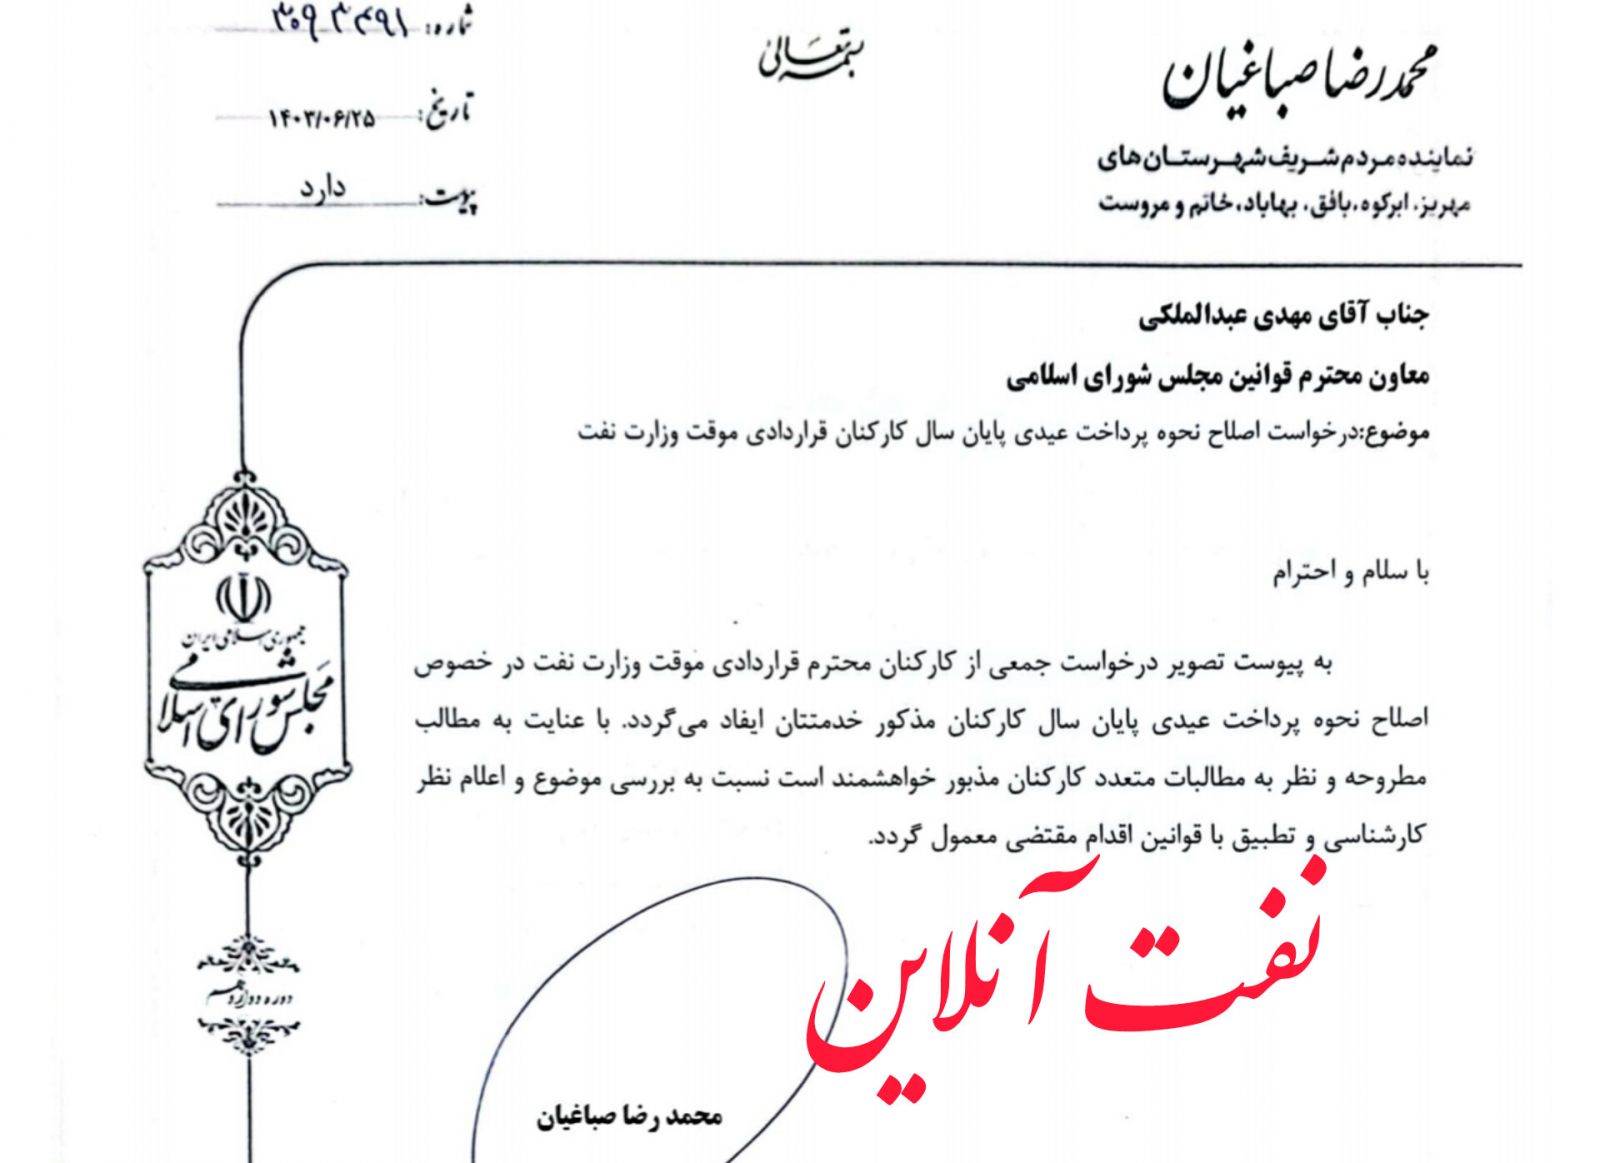 بسمه تعالی
محمدرضا صباغیان
نماینده مردم شریف شهرستان های
مهریز، ابرکوه، بافق، بهاباد، خاتم و مروست
شماره:
تاریخ: ۱۴۰۳/۰۶/۲۵
پیوست: دارد
جناب آقای مهدی عبدالملکی
معاون محترم قوانین مجلس شورای اسلامی
موضوع:درخواست اصلاح نحوه پرداخت عیدی پایان سال کارکنان قراردادی موقت وزارت نفت
با سلام و احترام
به پیوست تصویر درخواست جمعی از کارکنان محترم قراردادی موقت وزارت نفت در خصوص
اصلاح نحوه پرداخت عیدی پایان سال کارکنان مذکور خدمتتان ایفاد می‌گردد. با عنایت به مطالب
مطروحه و نظر به مطالبات متعدد کارکنان مذبور خواهشمند است نسبت به بررسی موضوع و اعلام نظر
کارشناسی و تطبیق با قوانین اقدام مقتضی معمول گردد.
جمهوری اسلامی ایران
مجلس شورای اسلامی
دوره دوازدهم
نفت آنلاین
محمد رضا صباغیان